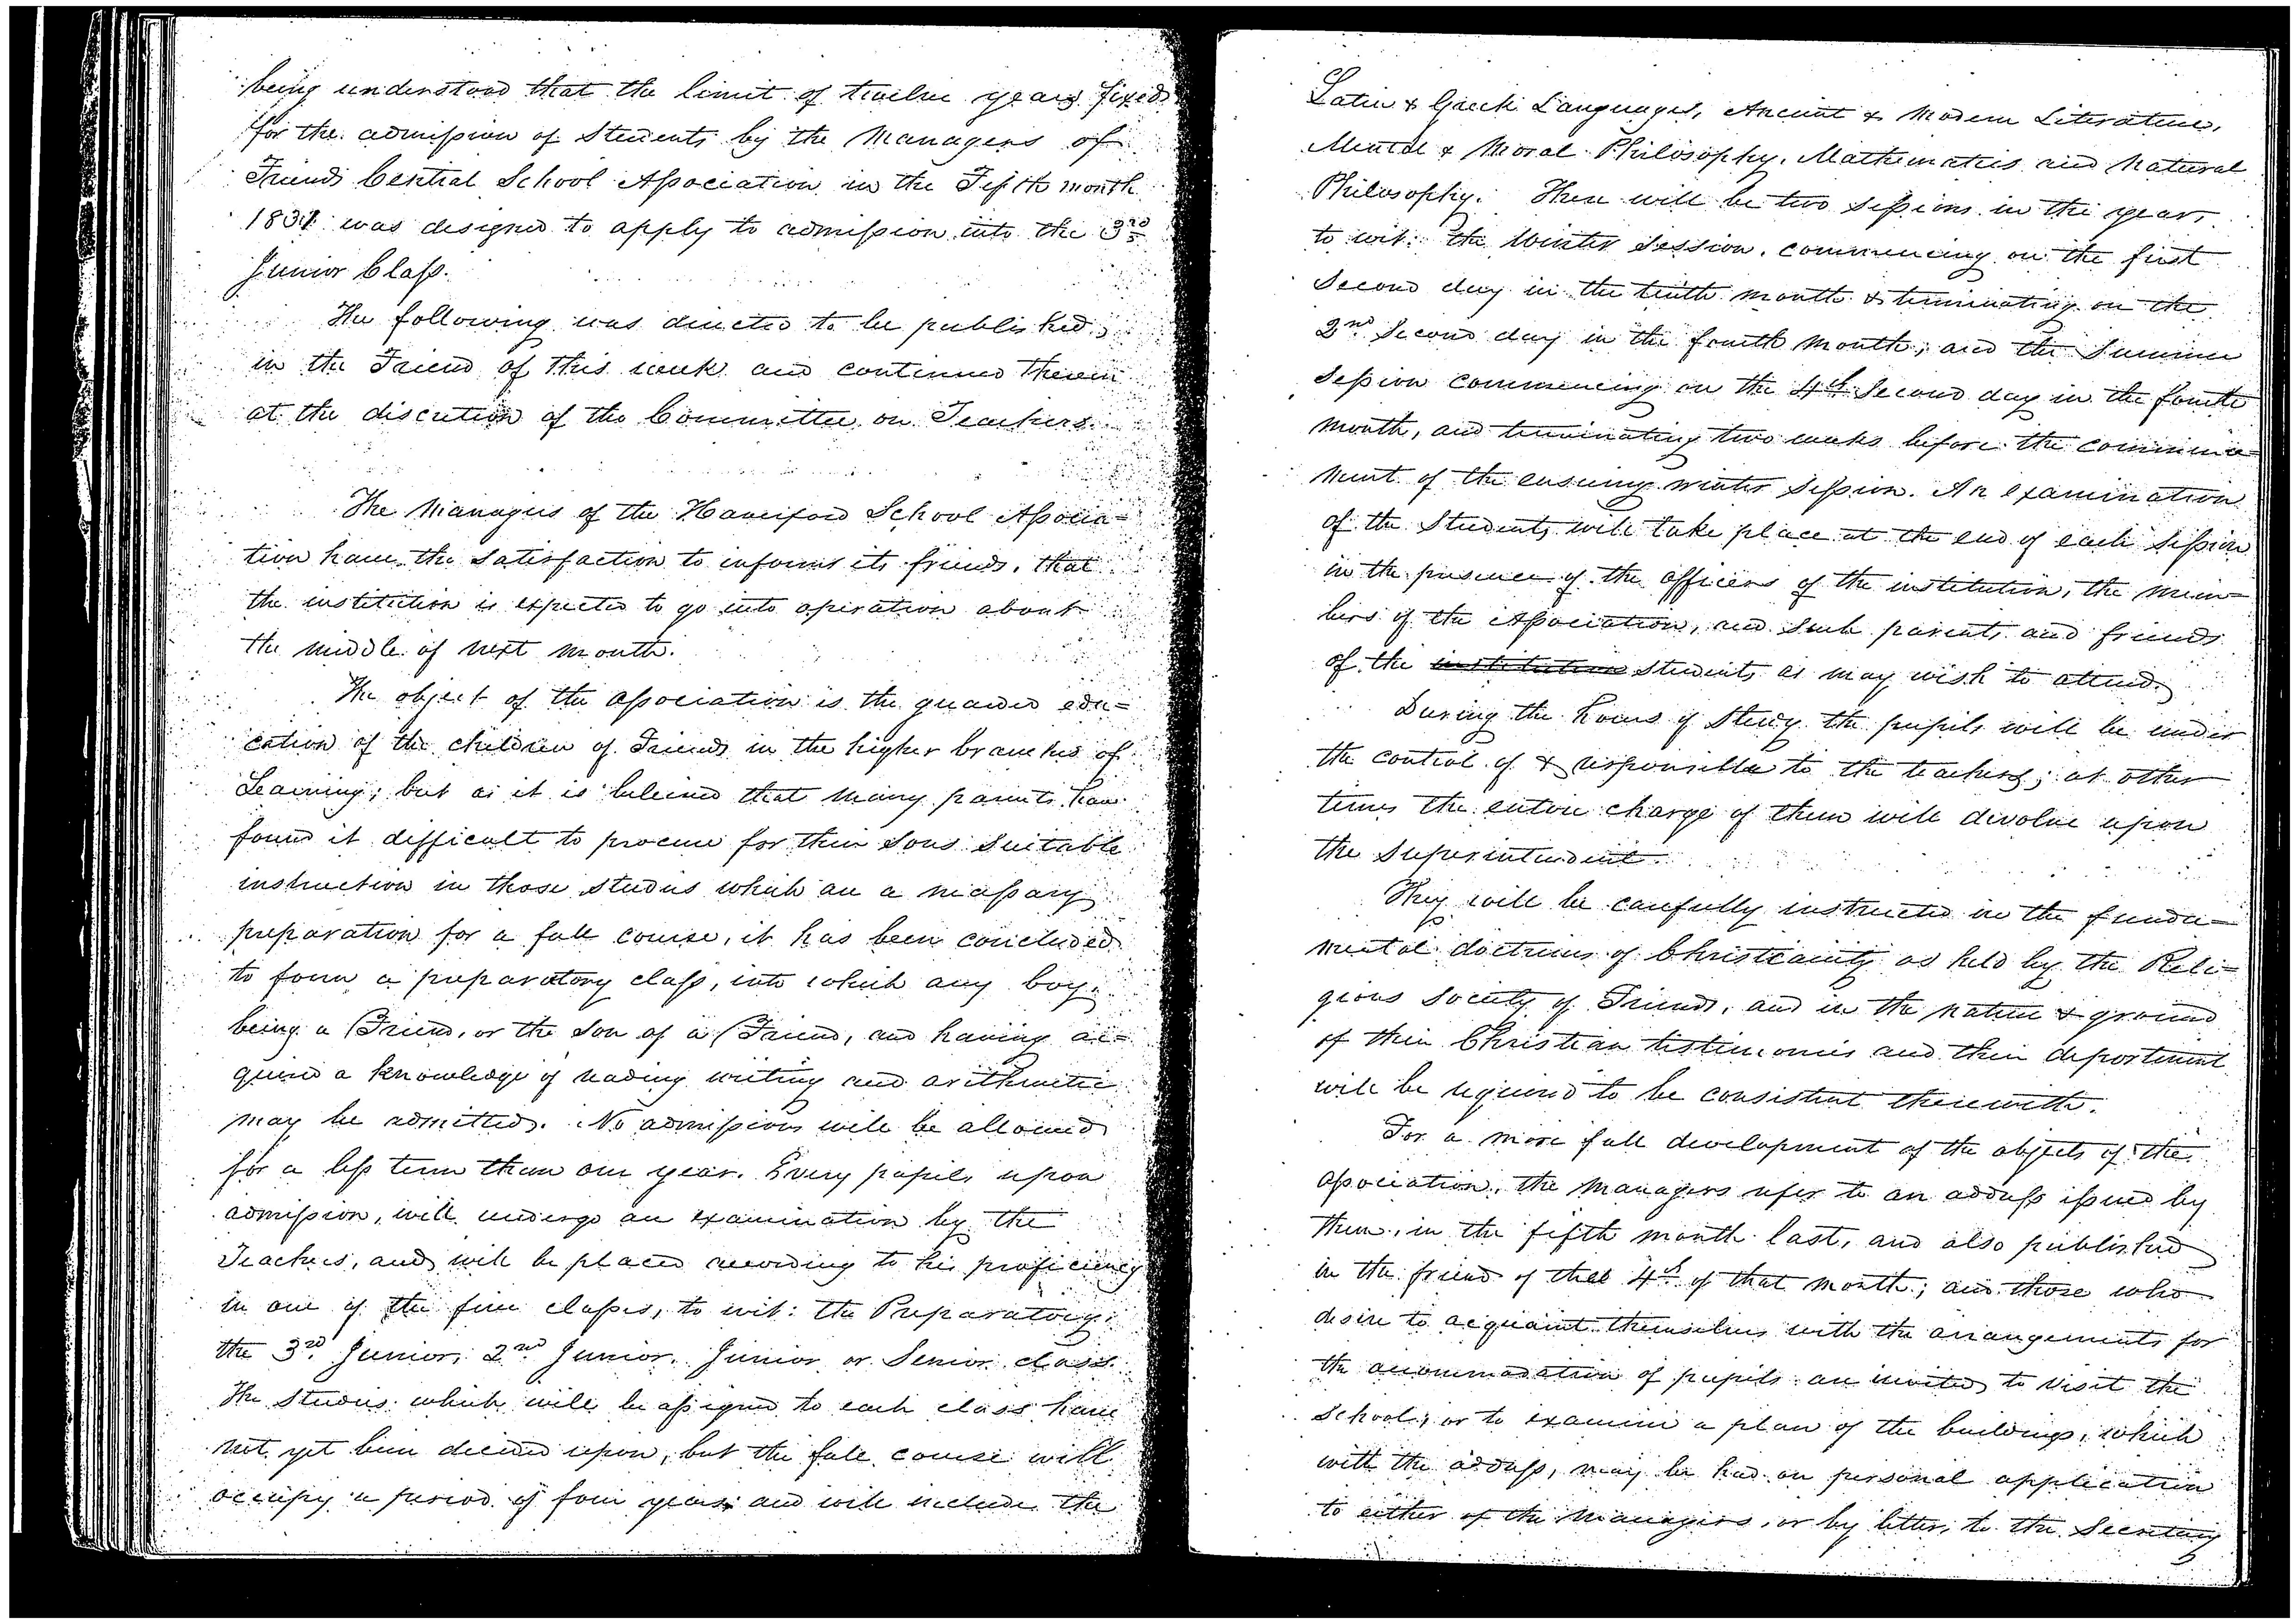 being understood that the limit of twelve years fixed
for the admission of Students by the Managers of
Friends Central School Association in the Fifth month
1831 was designed to apply to admission into the 3rd
Junior Class.
The following was directed to be published
in the Friend of this week and continued therein
at the discretion of the Committee on Teachers.
The Managers of the Haverford School Associa=
tion have the satisfaction to inform its friends, that
the institution is expected to go into operation about
the middle of next month.
The object of the association is the guarded edu=
cation of the children of Friends in the higher branches of
Learning; but as it is believed that many parents have
found it difficult to procure for their sons suitable
instruction in those studies which are a necessary
preparation for a full course, it has been concluded
to form a preparatory class, into which any boy
being a Friend, or the son of a Friend, and having ac=
quired a knowledge of reading writing and arithmetic
may be admitted. No admission will be allowed
for a less term than one year. Every pupil, upon
admission, will undergo an examination by the
Teachers, and will be placed according to his proficiency
in one of the five classes, to wit: the Preparatory,
the 3rd Junior, 2nd Junior, Junior or Senior class.
The studies which will be assigned to each class have
not yet been decided upon, but the full course will
occupy a period of four years and will include the
Latin & Greek Languages, Ancient & Modern Literature,
Mental & Moral Philosophy, Mathematics and Natural
Philosophy. There will be two sessions in the year,
to wit: the Winter Session, commencing on the first
Second day in the tenth month & terminating on the
2nd Second day in the fourth month; and the Summer
Session commencing on the 4th Second day in the fourth
month, and terminating two weeks before the commence=
ment of the ensuing winter session. An examination
of the Students will take place at the end of each session
in the presence of the officers of the institution, the mem=
bers of the Association, and such parents and friends
of the institution students as may wish to attend.
During the hours of Study the pupils will be under
the control of & responsible to the teachers; at other
times the entire charge of them will devolve upon
the Superintendent.
They will be carefully instructed in the funda=
mental doctrines of Christianity as held by the Reli=
gious Society of Friends, and in the nature & ground
of their Christian testimonies and their deportment
will be required to be consistent therewith.
For a more full development of the objects of the
association, the managers refer to an address issued by
them, in the fifth month last, and also published
in the friend of the 4th of that month; and those who
desire to acquaint themselves with the arrangements for
the accommodation of pupils are invited to visit the
School, or to examine a plan of the buildings, which
with the address, may be had on personal application
to either of the Managers, or by letter, to the Secretary